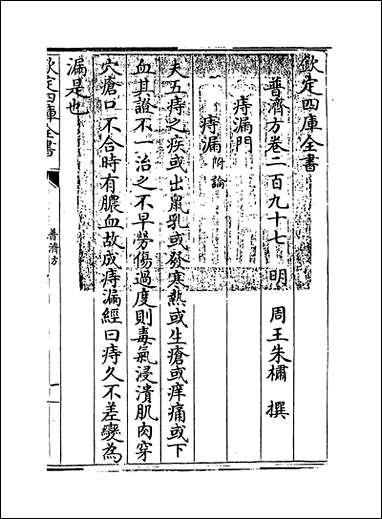 欽定四庫全書
普濟方卷二百九十七 明 周王朱橚 撰
痔漏門
痔漏附論
夫五痔之疾或出鼠乳或發寒熱或生瘡或痒痛或下
血其證不一治之不早勞傷過度則毒氣浸潰肌肉穿
穴瘡口不合時有膿血故成痔漏經曰痔久不差變為
漏是也
欽定四庫全書
普濟方
一